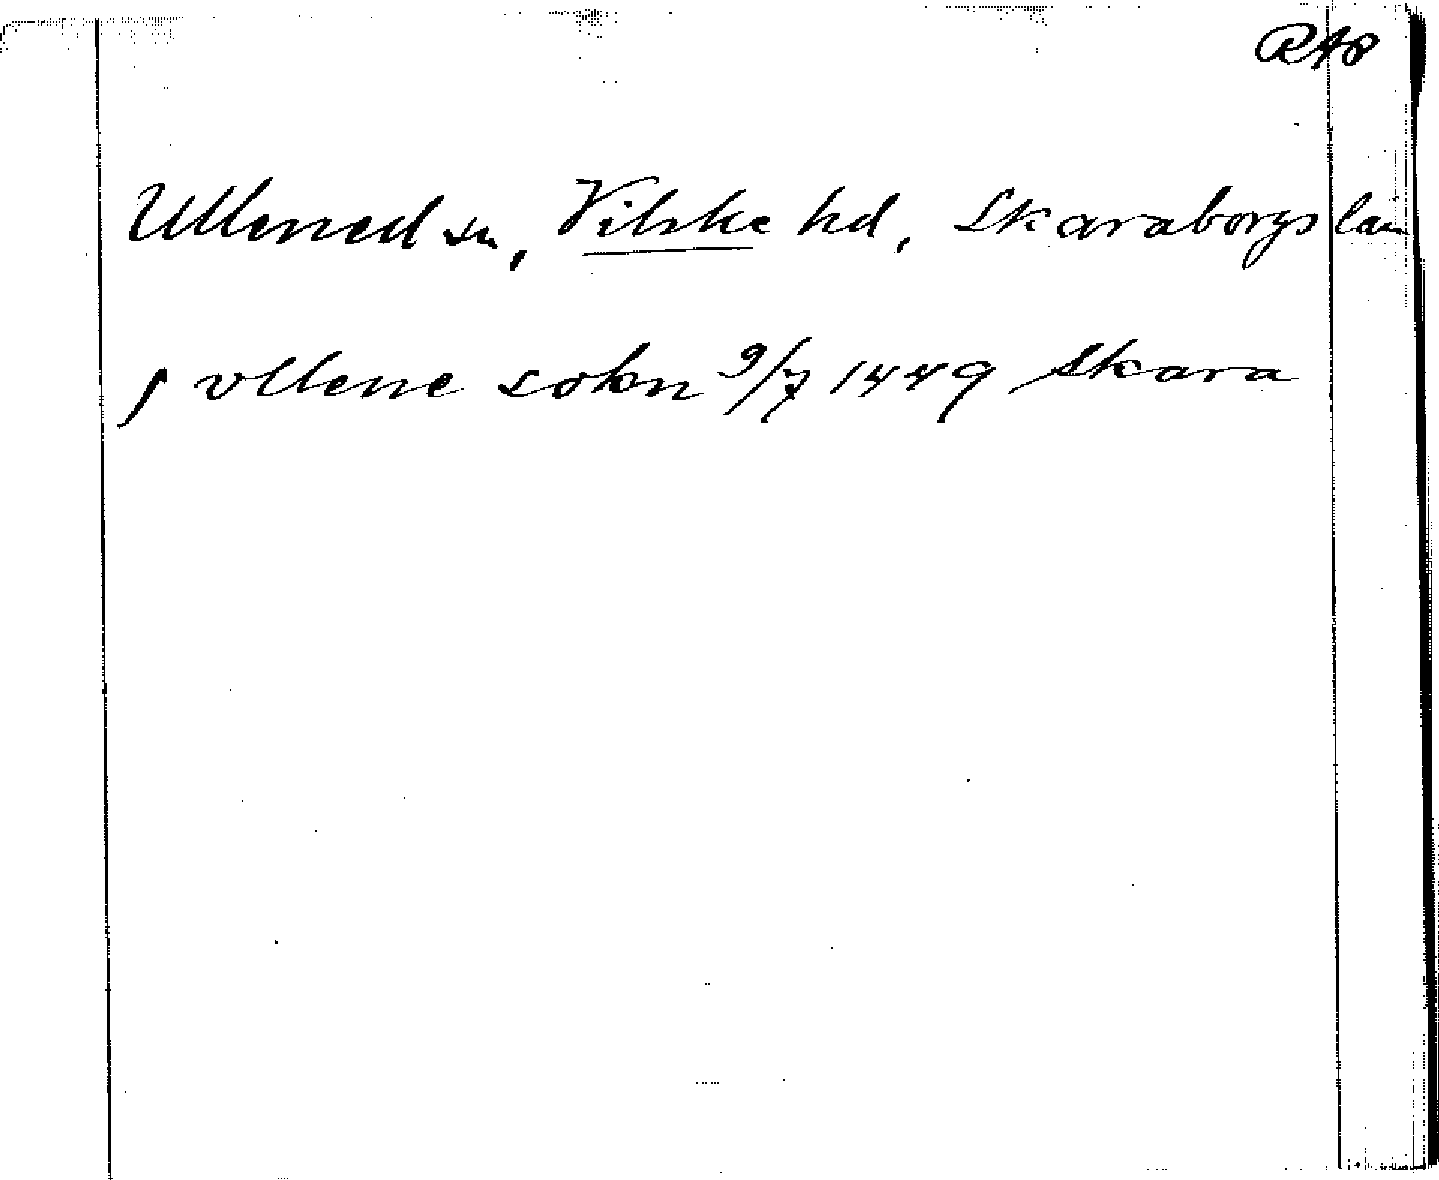 RAp
Ullened sn, Vilske hd, Skaraborgs län
j vllene sokn 9/7 1449 Skara